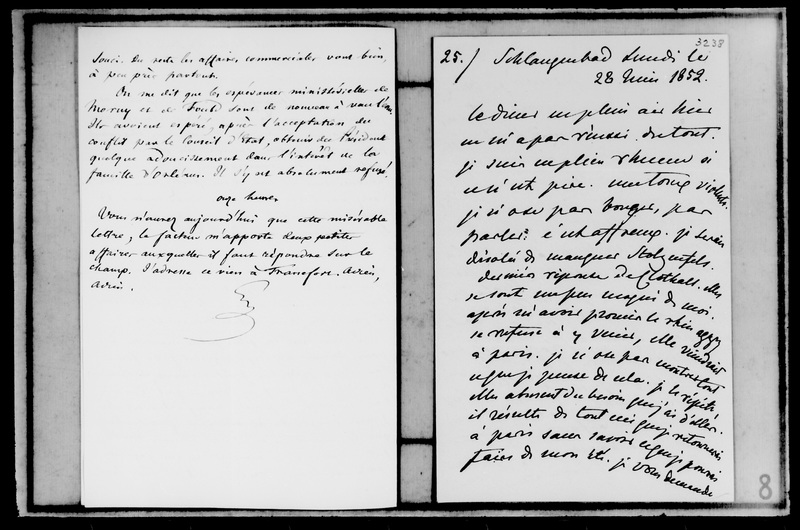 souci. Du reste les affaires commerciales vont bien,
à peu près partout.
On me dit que les espérances ministérielles de
Morny et de Fould sont de nouveau à vau l'eau.
Ils avoient espéré, après l'acceptation du
conflit par le Conseil d'Etat, obtenir du Président
quelque adoucissement dans l'intérêt de la
famille d'Orléans. Il s'y est absolument refusé.
onze heures
Vous n'aurez aujourd'hui que cette misérable
lettre, le facteur m'apporte deux petites
affaires auxquelles il faut répondre sur le
champ. J'adresse ce rien à Francfort. Adieu,
Adieu.
3238
25./ Schlangenbad Lundi le
28 Juin 1852.
le diner en plein air hier
ne m'a pas réussi du tout.
je suis en plein rhume si
ce n'est pire. une toux violente.
je n'ose pas bouger, pas
parler. c'est affreux. je serais
désolée de manquer Stolzenfels.
dernière réponse de
se sont un peu de moi.
après m'avoir promis le rhin
se refuse à y venir, elle viendrait
à paris. je n'ose pas montrer tout
ce que je pense de cela. je le répète
elles abusent du besoin que j'ai d'elles.
il résulte de tout ceci que je retournerai
à paris sans savoir ce que je pourrai
faire de mon été. je vous demande
8